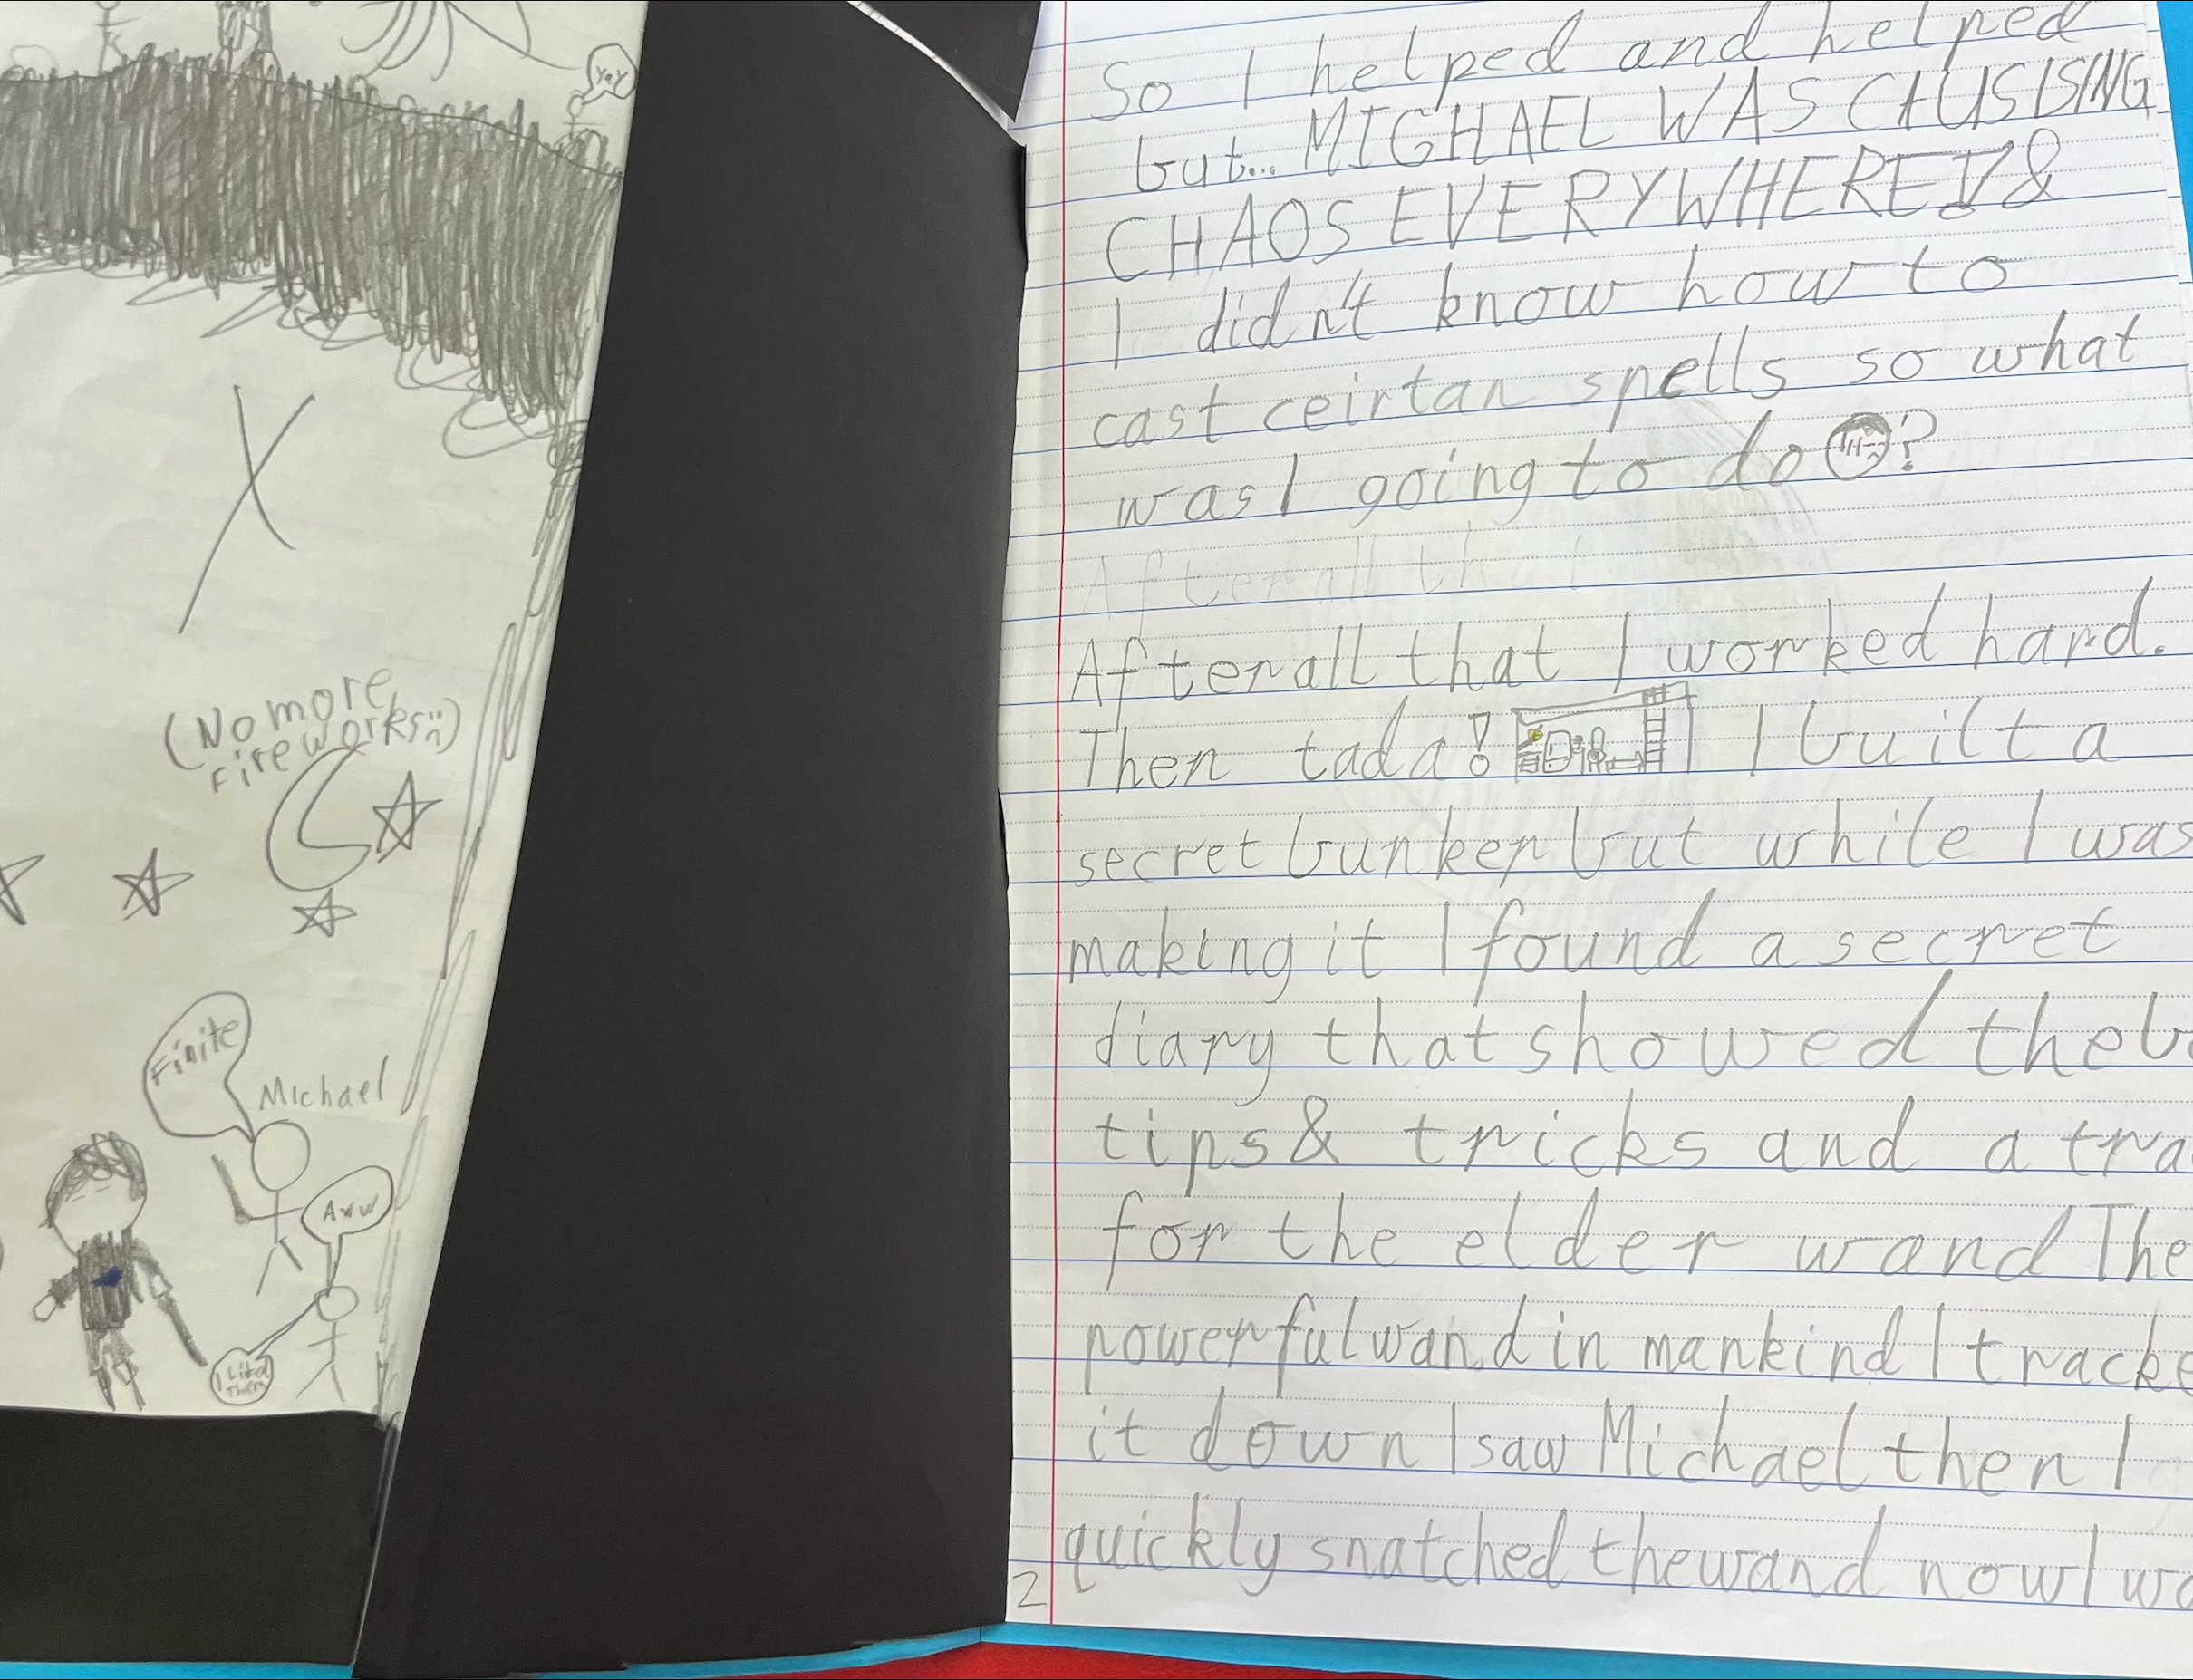 yay
(No more
fireworks:()
Finite
Michael
Aww
I Liked
Them
So I helped and helped
but... MICHAEL WAS CAUSISING
CHAOS EVERYWHERE! &
I did'nt know how to
cast ceirtan spells so what
was I going to do ?
After all that
After all that I worked hard.
Then tada! I built a
secret bunker but while I was
making it I found a secret
diary that showed the
tips & tricks and a
for the elder wand The
powerful wand in mankind I
it down I saw Michael then I
quickly snatched the wand now I
2